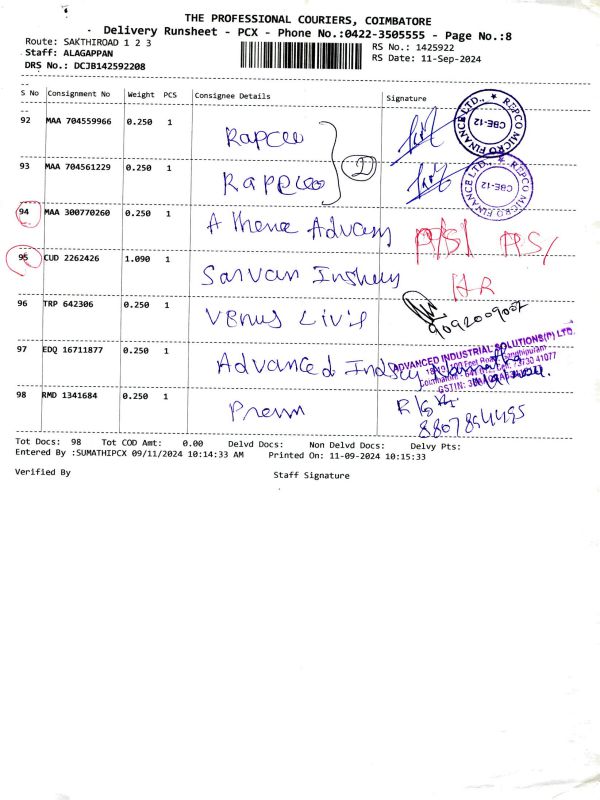 THE PROFESSIONAL COURIERS, COIMBATORE
Delivery Runsheet - PCX - Phone No.:0422-3505555 - Page No.:8
Route: SAKTHIROAD 1 2 3
RS No.: 1425922
Staff: ALAGAPPAN
RS Date: 11-Sep-2024
DRS No.: DCJB142592208
S No Consignment No Weight PCS Consignee Details Signature
92 MAA 704559966 0.250 1
REPCO MICRO FINANCE LTD., CBE-12
93 MAA 704561229 0.250 1
2
REPCO MICRO FINANCE LTD., CBE-12
94 MAA 300770260 0.250 1 Athena
95 CUD 2262426 1.090 1 Sarvan
96 TRP 642306 0.250 1 Venus
9092009002
97 EDQ 16711877 0.250 1 Advanced
ADVANCED INDUSTRIAL SOLUTIONS(P) LTD.
98 RMD 1341684 0.250 1 Prem
Tot Docs: 98 Tot COD Amt: 0.00 Delvd Docs: Non Delvd Docs: Delvy Pts:
Entered By :SUMATHIPCX 09/11/2024 10:14:33 AM Printed On: 11-09-2024 10:15:33
Verified By Staff Signature